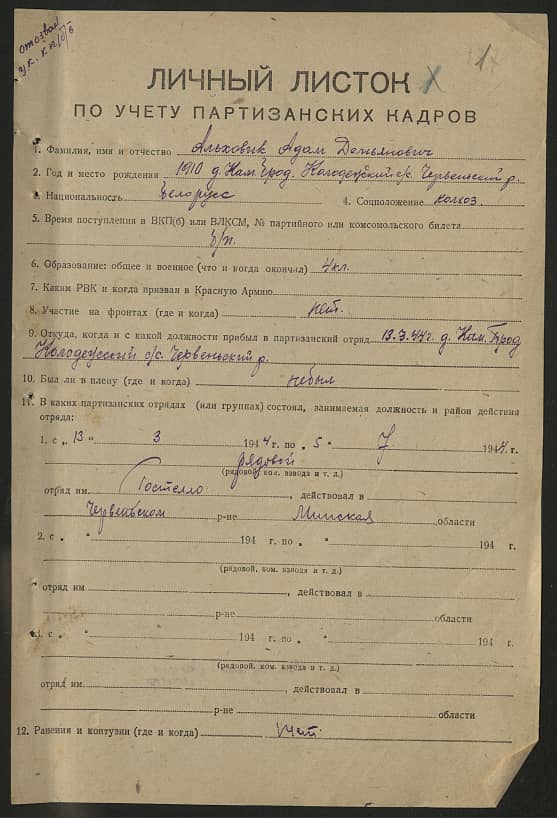 отозвал
ЛИЧНЫЙ ЛИСТОК
ПО УЧЕТУ ПАРТИЗАНСКИХ КАДРОВ
1. Фамилия, имя и отчество Альховик Адам Демьянович
2. Год и место рождения 1910 д. Кам. Брод. Колодежский с/с. Червеньский р.
3. Национальность Белорусс 4. Соцположение колхоз.
5. Время поступления в ВКП(б) или ВЛКСМ, № партийного или комсомольского билета
б/п.
6. Образование: общее и военное (что и когда окончал) 4 кл.
7. Каким РВК и когда призван в Красную Армию
8. Участие на фронтах (где и когда) нет.
9. Откуда, когда и с какой должности прибыл в партизанский отряд 13.3.44г. д. Кам. Брод
Колодежский с/с. Червеньский р.
10. Был ли в плену (где и когда) небыл
11. В каких партизанских отрядах (или группах) состоял, занимаемая должность и район действия
отряда:
1. с „ 13 " 3 1944 г. по „ 5 " 7 1944 г.
рядовой
(рядовой, ком. взвода и т. д.)
отряд им. Гостелло, действовал в
Червеньском р-не Минская области
2. с „ " 194 г. по „ " 194 г.
(рядовой, ком. взвода и т. д.)
отряд им , действовал в
р-не области
3. с „ " 194 г. по „ " 194 г.
(рядовой, ком. взвода и т. д.)
отряд им. , действовал в
р-не области
12. Ранения и контузии (где и когда) нет.